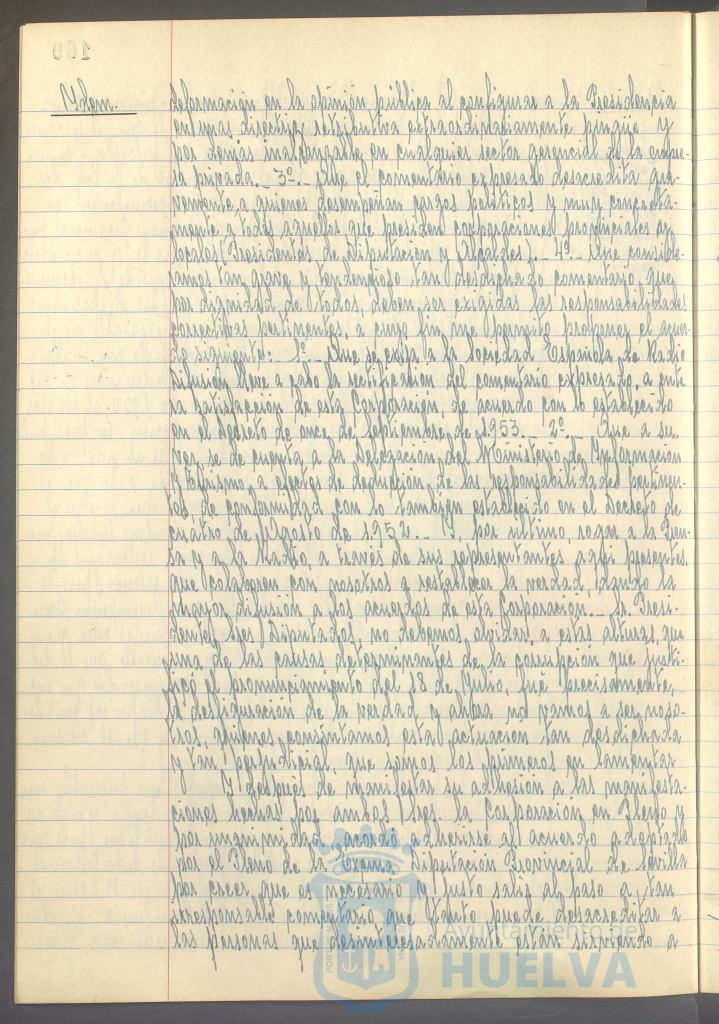 169
Idem.
deformación en la opinión pública al configurar a la Presidencia
en una directriz retributiva extraordinariamente pingüe y
por demás inalcanzable en cualquier sector gerencial de la empre-
sa privada. _ 3º _ Que el comentario expresado desacredita gra-
vemente a quienes desempeñan cargos políticos y muy concreta-
mente a todos aquellos que presiden corporaciones provinciales y
locales (Presidentes de Diputación y Alcaldes). _ 4º _ Que conside-
ramos tan grave y tendencioso tan desdichado comentario que
por dignidad de todos, deben ser exigidas las responsabilidades
correctivas pertinentes, a cuyo fin me permito proponer el acuer-
do siguiente: 1º _ Que se exija a la Sociedad Española de Radio
difusión lleve a cabo la rectificación del comentario expresado, a ente
ra satisfacción de esta Corporación, de acuerdo con lo establecido
en el Decreto de once de septiembre de 1.953 _ 2º _ Que a su
vez se de cuenta a la Delegación del Ministerio de Información
y Turismo a efectos de deducción de las responsabilidades pertinen-
tes, de conformidad con lo también establecido en el Decreto de
cuatro de Agosto de 1.952 _ Y, por último, rogar a la Pren-
sa y a la Radio, a través de sus representantes aquí presentes,
que colaboren con nosotros a restablecer la verdad dando la
mayor difusión a los acuerdos de esta Corporación. _ Sr. Presi-
dente, Sres Diputados, no debemos olvidar a estas alturas, que
una de las causas determinantes de la corrupción que justi-
ficó el pronunciamiento del 18 de Julio, fué precisamente,
la desfiguración de la verdad y ahora no vamos a ser noso-
tros, quienes consintamos esta actuación tan desdichada
y tan perjudicial, que somos los primeros en lamentar
Y después de manifestar su adhesión a las manifesta-
ciones hechas por ambos Sres. la Corporación en Pleno y
por unanimidad, acordó adherirse al acuerdo adoptado
por el Pleno de la Excma. Diputación Provincial de Sevilla
por creer que es necesario y justo salir al paso a tan
irresponsable comentario que tanto puede desacreditar a
las personas que desinteresadamente están sirviendo a
Ayuntamiento de
HUELVA